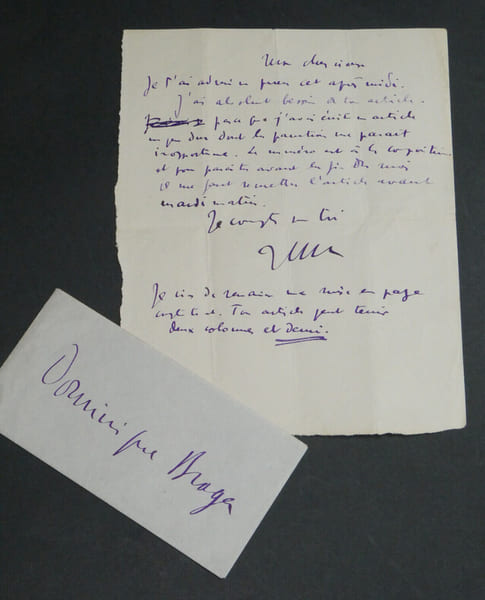 Mon cher vieux
Je t'ai admiré cet après midi.
J'ai absolument besoin de ton article.
parce que j'avais écrit un article
un peu dur dont la parution me parait
inopportune. Le numéro est à la composition
et pour paraître avant la fin du mois
il me faut remettre l'article avant
mardi matin.
Je compte sur toi
Je viens de une mise en page
Ton article peut tenir
deux colonnes et demi.
Dominique Braga